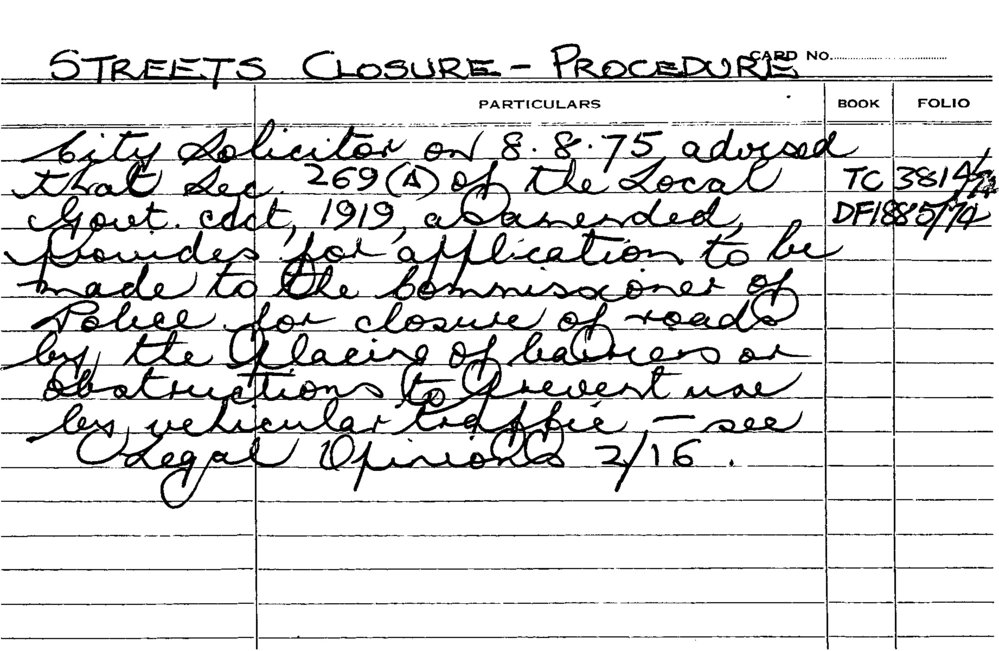 STREETS CLOSURE - PROCEDURE CARD No.
PARTICULARS BOOK FOLIO
City Solicitor on 8.8.75 advised
that Sec. 269(A) of the Local TC 3814/74
Govt. Act, 1919, as amended, DF1885/74
provides for application to be
made to the Commissioner of
Police for closure of roads
by the placing of barriers or
obstructions to prevent use
by vehicular traffic, - see
Legal Opinions 2/16.